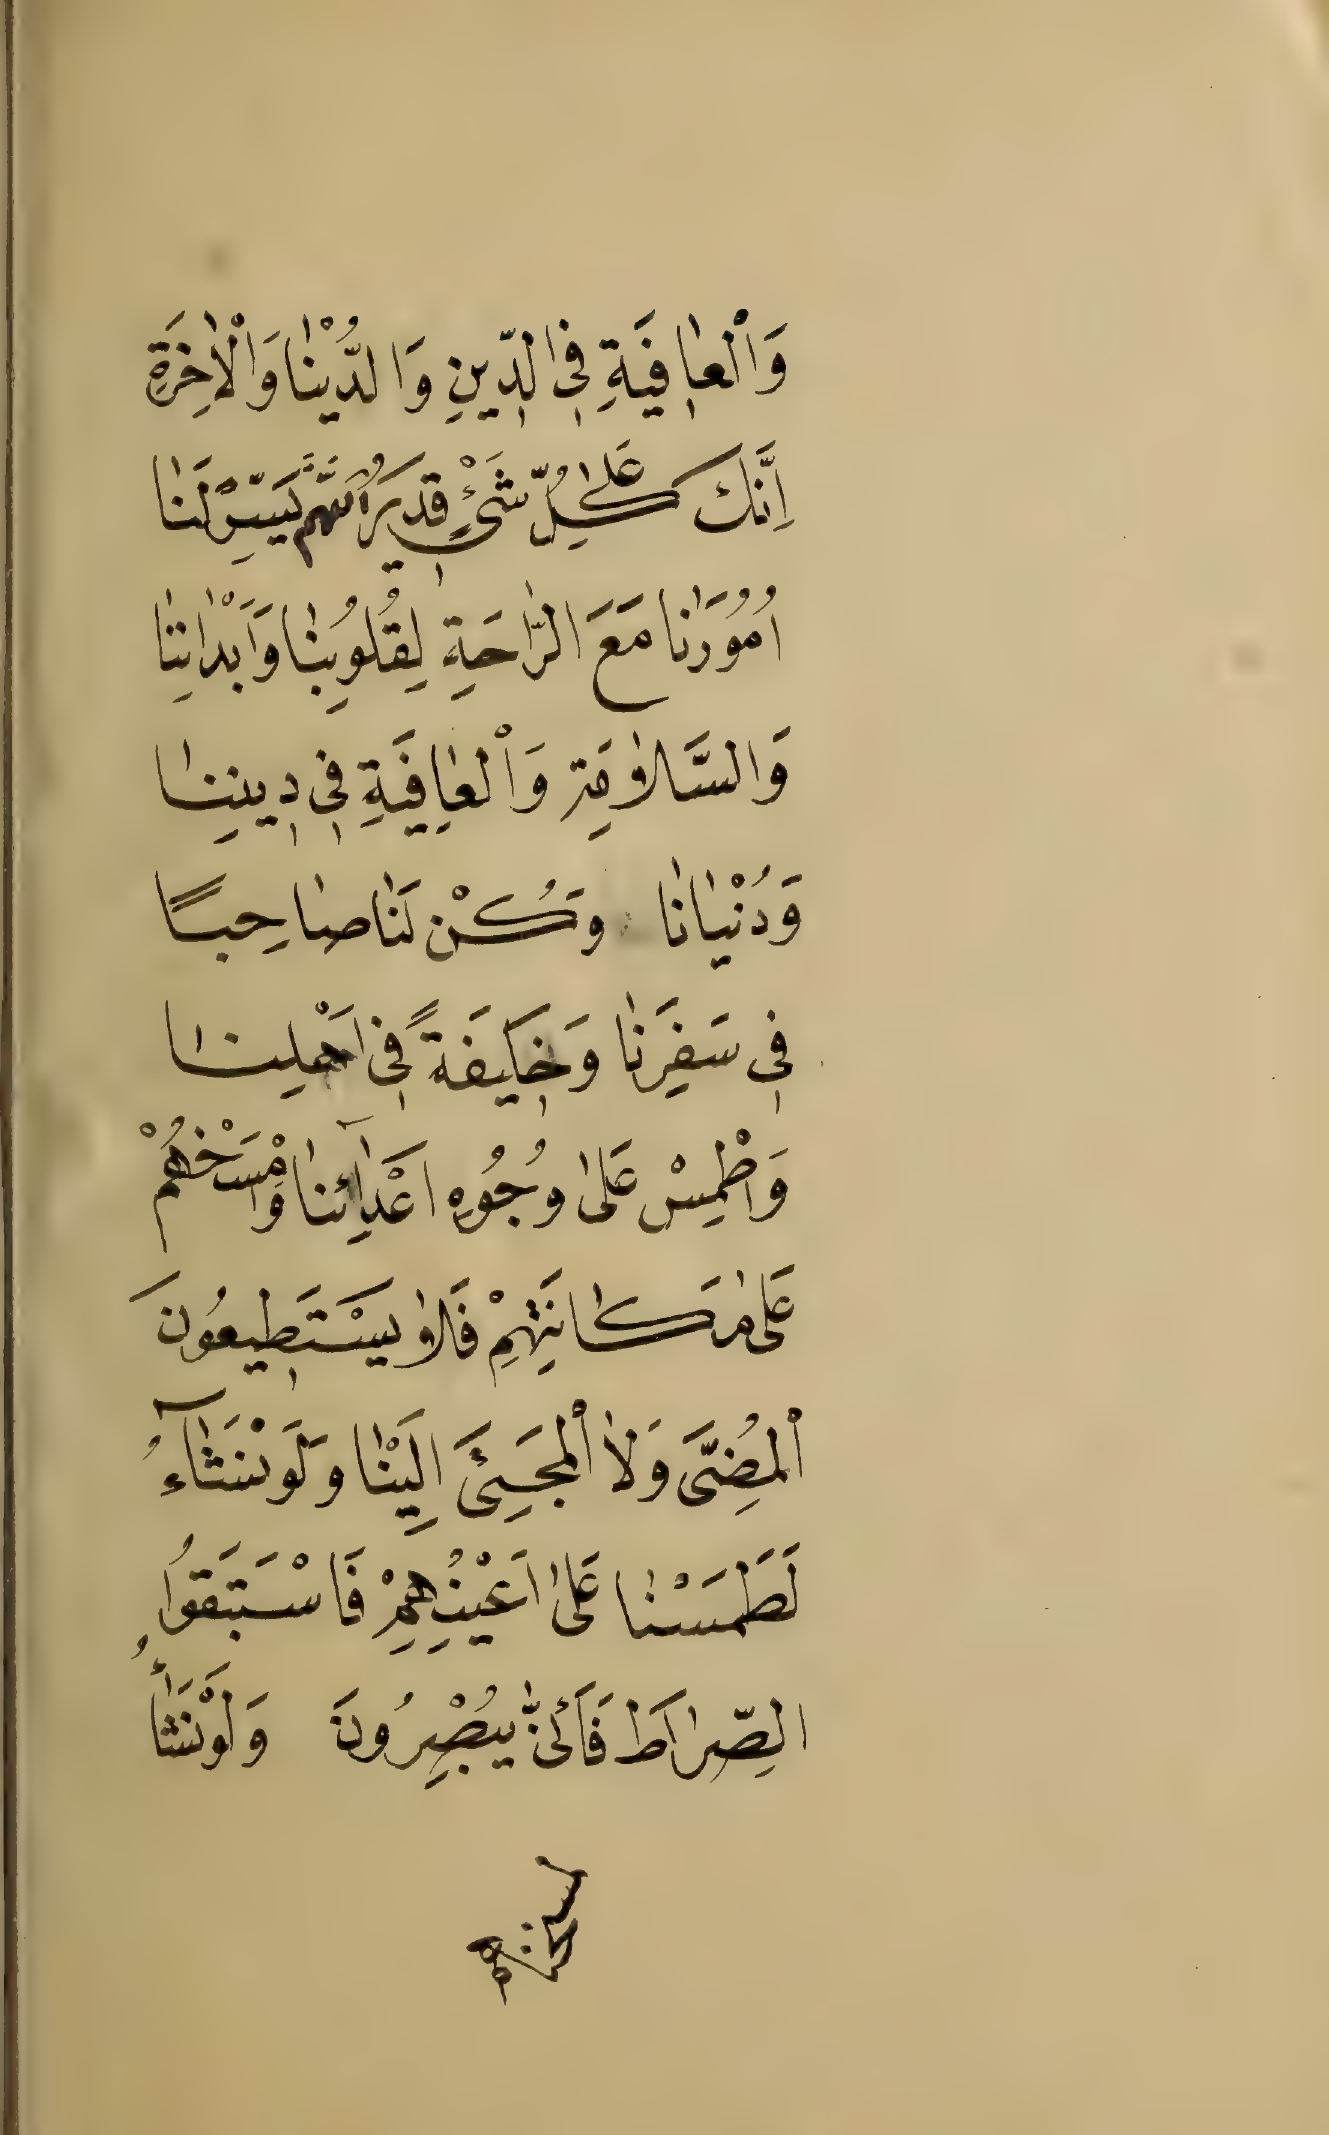 وَالْعَافِيَةِ فِي الدِّينِ وَالدُّنْيَا وَالْاٰخِرَةِ
اِنَّكَ عَلٰى كُلِّ شَيْءٍ قَدِيرٌ اَللّٰهُمَّ يَسِّرْ لَنَا
اُمُورَنَا مَعَ الرَّاحَةِ لِقُلُوبِنَا وَاَبْدَانِنَا
وَالسَّلَامَةِ وَالْعَافِيَةِ فِي دِينِنَا
وَدُنْيَانَا وَكُنْ لَنَا صَاحِبًا
فِي سَفَرِنَا وَخَلِيفَةً فِي اَهْلِنَا
وَاطْمِسْ عَلٰى وُجُوهِ اَعْدَائِنَا وَامْسَخْهُمْ
عَلٰى مَكَانَتِهِمْ فَلَا يَسْتَطِيعُونَ
الْمُضِيَّ وَلَا الْمَجِيئَ اِلَيْنَا وَلَوْ نَشَآءُ
لَطَمَسْنَا عَلٰى اَعْيُنِهِمْ فَاسْتَبَقُوا
الصِّرَاطَ فَاَنّٰى يُبْصِرُونَ وَلَوْ نَشَاءُ